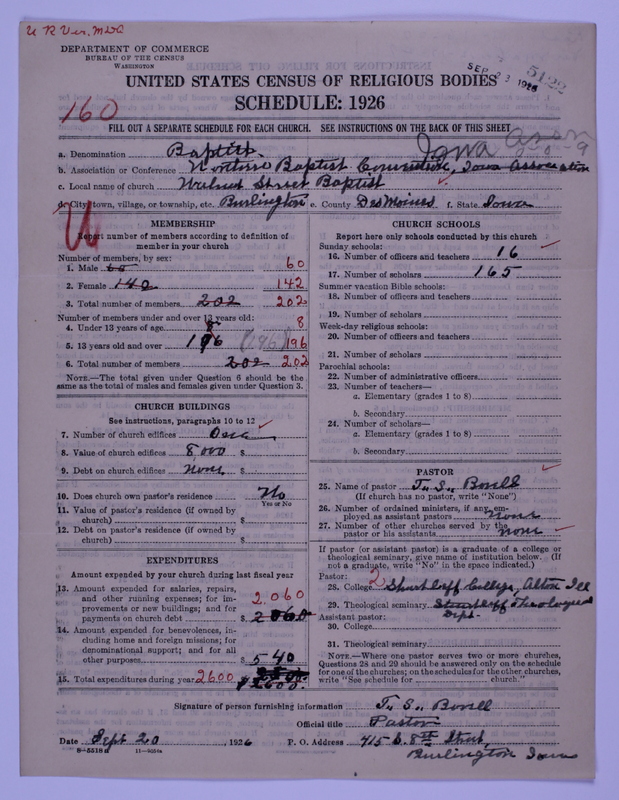 U R Ver. MDA
DEPARTMENT OF COMMERCE
BUREAU OF THE CENSUS
WASHINGTON
SEP 23 1926
5122
UNITED STATES CENSUS OF RELIGIOUS BODIES
SCHEDULE: 1926
160
FILL OUT A SEPARATE SCHEDULE FOR EACH CHURCH. SEE INSTRUCTIONS ON THE BACK OF THIS SHEET
Iowa Assn
a. Denomination Baptist
b. Association or Conference Northern Baptist Convention, Iowa Association
c. Local name of church Walnut Street Baptist
d. City, town, village, or township, etc. Burlington e. County Des Moines f. State Iowa
U
MEMBERSHIP
Report number of members according to definition of
member in your church
Number of members, by sex:
1. Male 60
2. Female 142 142
3. Total number of members 202 202
Number of members under and over 13 years old:
4. Under 13 years of age 8 8
5. 13 years old and over 196 (196) 196
6. Total number of members 202 202
NOTE.—The total given under Question 6 should be the
same as the total of males and females given under Question 3.
CHURCH BUILDINGS
See instructions, paragraphs 10 to 12
7. Number of church edifices One
8. Value of church edifices 8,000 $
9. Debt on church edifices None $
10. Does church own pastor's residence No
Yes or No
11. Value of pastor's residence (if owned by
church) $
12. Debt on pastor's residence (if owned by
church) $
EXPENDITURES
Amount expended by your church during last fiscal year
13. Amount expended for salaries, repairs,
and other running expenses; for im-
provements or new buildings; and for
payments on church debt $ 2060
2,060
14. Amount expended for benevolences, in-
cluding home and foreign missions; for
denominational support; and for all
other purposes $ 540
15. Total expenditures during year 2600 $ 2600.
CHURCH SCHOOLS
Report here only schools conducted by this church
Sunday schools:
16. Number of officers and teachers 16
17. Number of scholars 165
Summer vacation Bible schools:
18. Number of officers and teachers
19. Number of scholars
Week-day religious schools:
20. Number of officers and teachers
21. Number of scholars
Parochial schools:
22. Number of administrative officers
23. Number of teachers—
a. Elementary (grades 1 to 8)
b. Secondary
24. Number of scholars—
a. Elementary (grades 1 to 8)
b. Secondary
PASTOR
25. Name of pastor T. S.
(If church has no pastor, write "None")
26. Number of ordained ministers, if any, em-
ployed as assistant pastors none
27. Number of other churches served by the
pastor or his assistants none
If pastor (or assistant pastor) is a graduate of a college or
theological seminary, give name of institution below. (If
not a graduate, write "No" in the space indicated.)
Pastor: 2
28. College Shurtleff College, Alton Ill
29. Theological seminary Shurtleff Theological
Dept.
Assistant pastor:
30. College
31. Theological seminary
NOTE.—Where one pastor serves two or more churches,
Questions 28 and 29 should be answered only on the schedule
for one of the churches; on the schedules for the other churches,
write "See schedule for church."
Signature of person furnishing information T. S.
Official title Pastor
Date Sept 20, 1926 P. O. Address 715 S. 8th Street,
Burlington Iowa
8-5518a 11-9054a